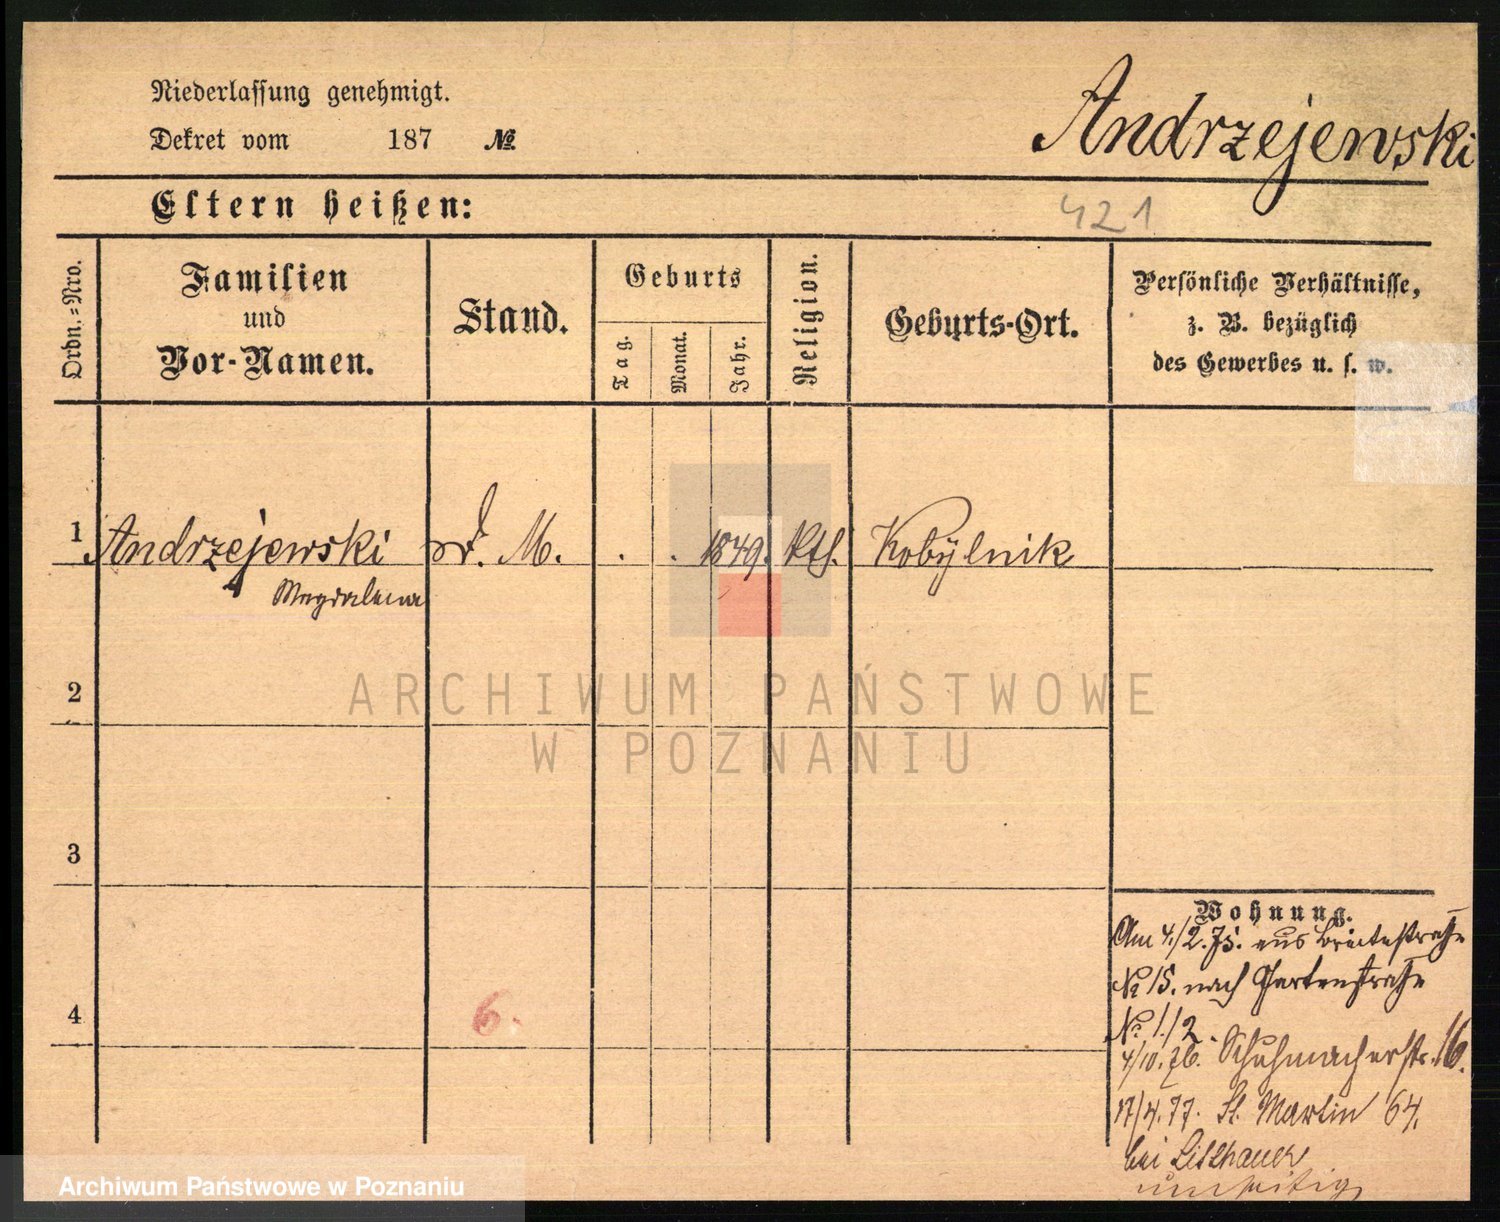 Niederlassung genehmigt.
Dekret vom 187 №
Andrzejewski
Eltern heißen:
421
Ordn.-Nro.
Familien
und
Vor-Namen.
Stand.
Geburts
Tag.
Monat.
Jahr.
Religion.
Geburts-Ort.
Persönliche Verhältnisse,
z. B. bezüglich
des Gewerbes u. s. w.
1 Andrzejewski D. M. . . 1849. kth. Kobylnik
Magdalena
ARCHIWUM PAŃSTWOWE
W POZNANIU
2
3
4
6.
Wohnung.
Am 4/2. 75. aus Breitestraße
№ 15. nach Gartenstraße
№ 1/2.
4/10. 76. Schuhmacherstr. 16.
17/4. 77. St. Martin 64.
bei
umseitig
Archiwum Państwowe w Poznaniu